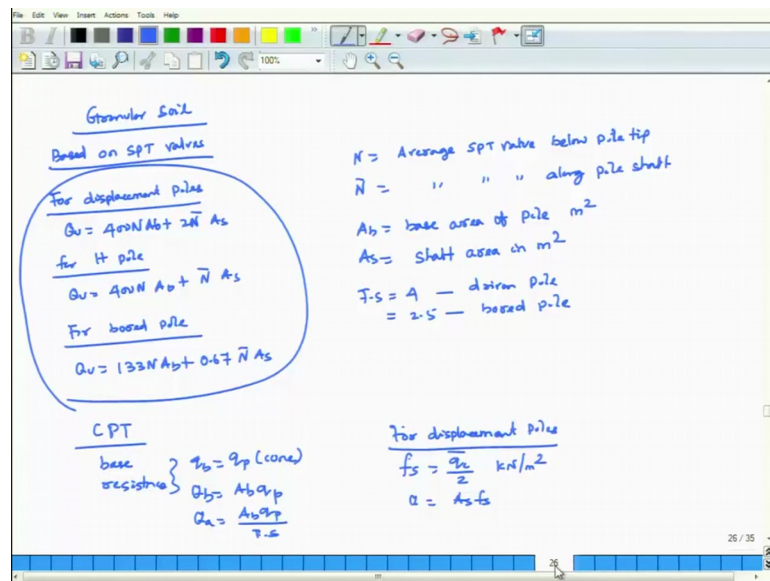 File Edit View Insert Actions Tools Help
100%
Granular Soil
Based on SPT values
For displacement piles
Qu = 400N Ab + 2N̄ As
for H pile
Qu = 400N Ab + N̄ As
For bored pile
Qu = 133N Ab + 0.67 N̄ As
N = Average SPT value below pile tip
N̄ = " " " along pile shaft
Ab = base area of pile m²
As = shaft area in m²
F.S = 4 — driven pile
= 2.5 — bored pile
CPT
base resistance } qb = qp (cone)
Qb = Ab qp
Qa = Ab qp / F.S
For displacement piles
fs = q̄c / 2 kN/m²
Q = As fs
26 / 35
26